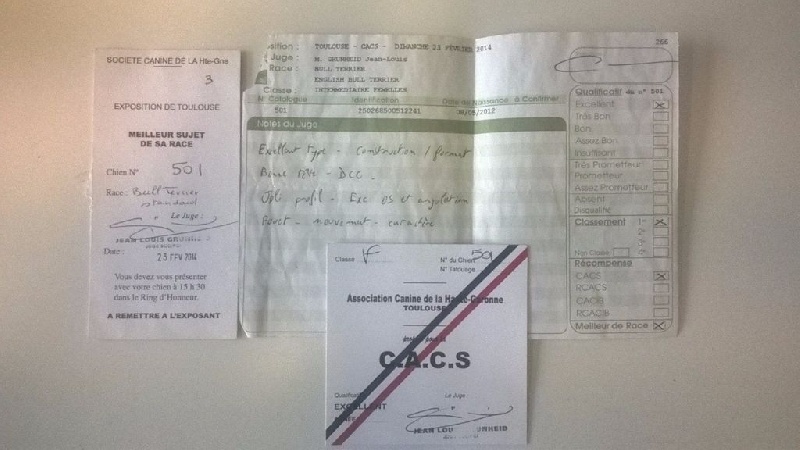 SOCIETE CANINE DE LA Hte-Gne
3
EXPOSITION DE TOULOUSE
MEILLEUR SUJET
DE SA RACE
Chien N° 501
Race : Bull Terrier
standard
Le Juge :
JEAN LOUIS
Date : 23 FEV 2014
Vous devez vous présenter
avec votre chien à 15 h 30
dans le Ring d'Honneur.
A REMETTRE A L'EXPOSANT
TOULOUSE - CACS - DIMANCHE 23 FÉVRIER 2014
Juge : M. GRUNHEID Jean-Louis
Race : BULL TERRIER
ENGLISH BULL TERRIER
Classe : INTERMEDIAIRE FEMELLES
N° Catalogue Identification Date de Naissance à Confirmer
501
Notes du Juge
Excellent type - construction / format
Bonne tête -
Joli profil - Exc os et angulation
mouvement - caractère
Qualificatif du n° 501
Excellent
Très Bon
Bon
Assez Bon
Insuffisant
Très Prometteur
Prometteur
Assez Prometteur
Absent
Disqualifié
Classement
Non Classé
Récompense
CACS
RCACS
CACIB
RCACIB
Meilleur de Race
Classe F
N° du Chien 501
N° Tatouage
Association Canine de la Haute-Garonne
TOULOUSE
C.A.C.S
Le Juge
EXCELLENT
JEAN LOU UNHEID